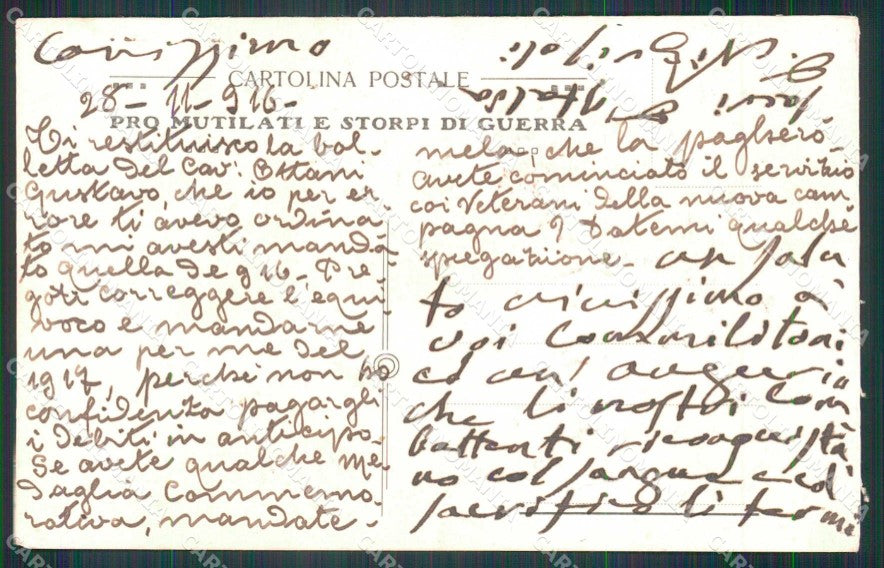 Carissimo
CARTOLINA POSTALE
28-11-916-
PRO MUTILATI E STORPI DI GUERRA
Ti restituisco la bol-
letta del Cav. Ottani
Gustavo, che io per er-
rore ti avevo ordina-
to mi avesti manda-
to quella de 916- Pre-
goti correggere l'equi-
voco e mandarne
una per me del
1917, perché non ho
confidenza pagargli
i debiti in anticipo.
Se avete qualche me-
daglia commemo-
rativa, mandate-
mela, che la pagherò-
avete cominciato il servizio
coi Veterani della nuova cam
pagna? Datemi qualche
spegazione- un salu
to vivissimo a
voi Commilitoni
ed augurii
che li nostri Com
battenti riconquista
no col sangue ed
sacrifizo li termi